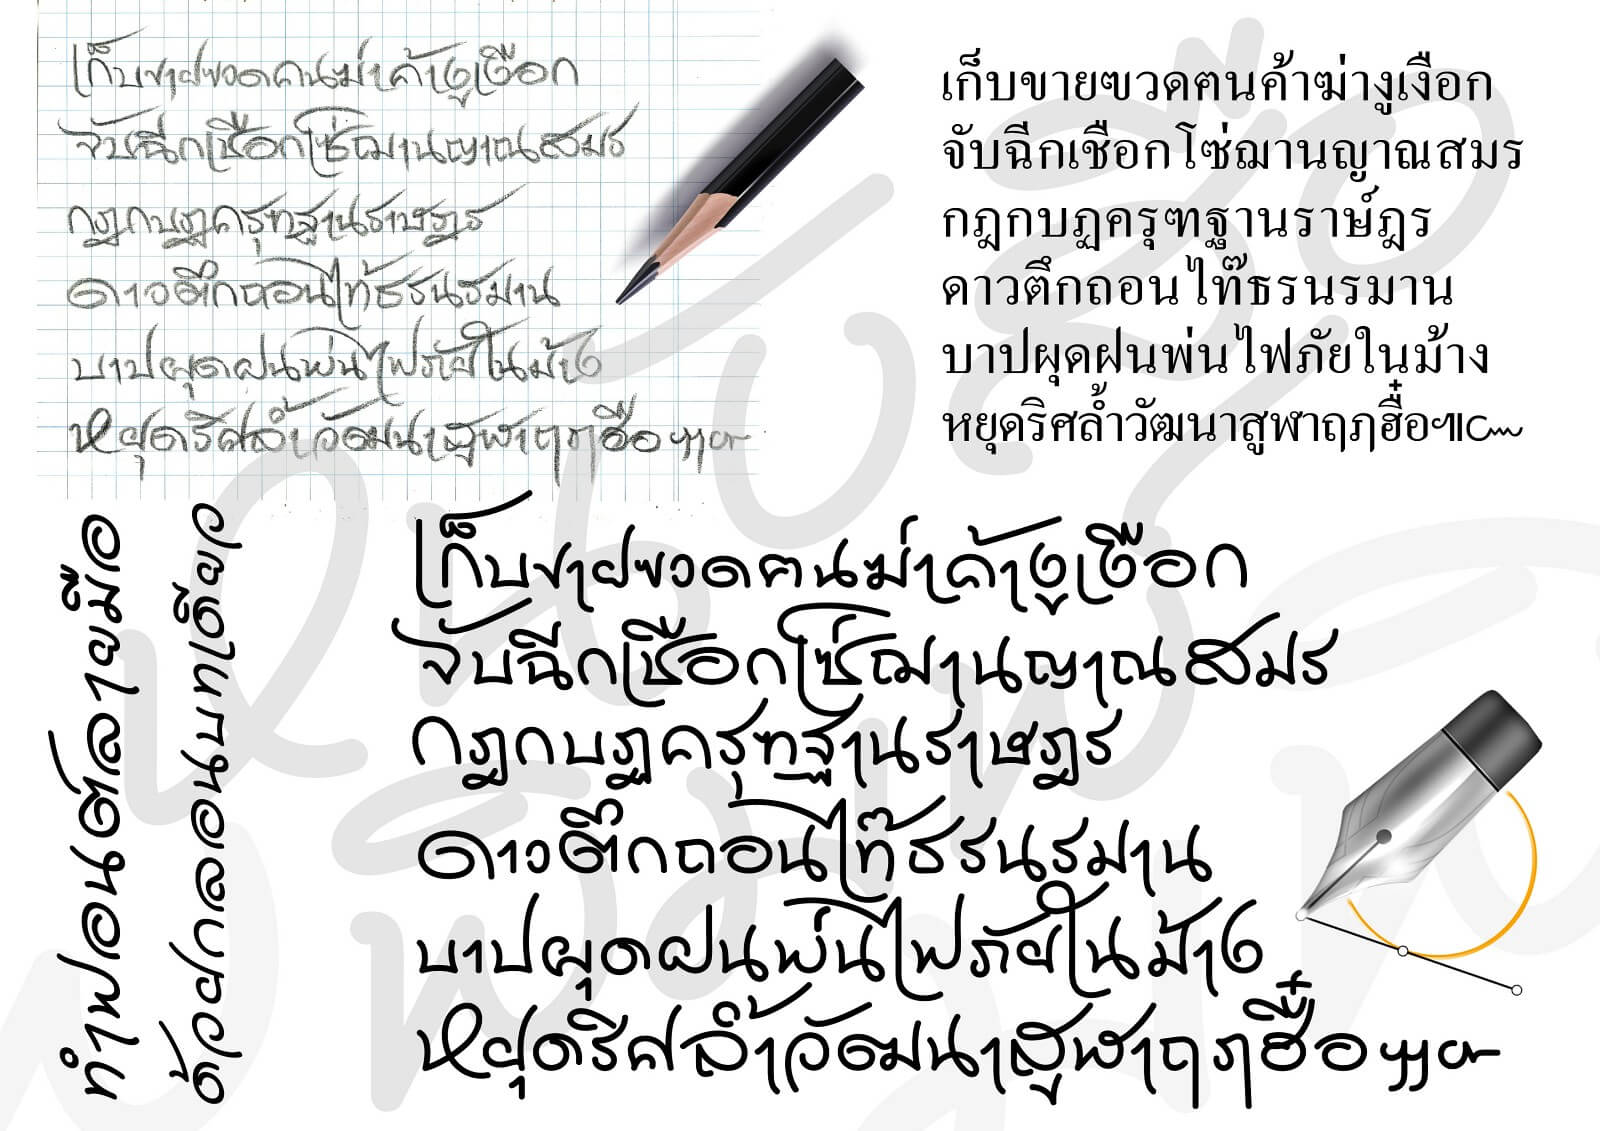 เก็บขายฃวดฅนฆ่าค้างูเงือก
จับฉีกเชือกโซ่ฌานญาณสมร
กฎกบฏครุฑฐานราษฎร
ดาวตึกถอนไท้ธรนรมาน
บาปผุดฝนพ่นไฟภัยในม้าง
หยุดริศล้ำวัฒนาสูฬาฤฦฮือฯ๚๛
เก็บขายฃวดฅนค้าฆ่างูเงือก
จับฉีกเชือกโซ่ฌานญาณสมร
กฎกบฏครุฑฐานราษ์ฎร
ดาวตึกถอนไท๊ธรนรมาน
บาปผุดฝนพ่นไฟภัยในม้าง
หยุดริศล้ำวัฒนาสูฬาฤฦฮื๋อฯ๚๛
ทำฟอนต์ลายมือ
ด้วยกลอนบทเดียว
เก็บขายฃวดฅนฆ่าค้างูเงือก
จับฉีกเชือกโซ่ฌานญาณสมร
กฎกบฏครุฑฐานราษฎร
ดาวตึกถอนไท๊ธรนรมาน
บาปผุดฝนพ่นไฟภัยในม้าง
หยุดริศล้ำวัฒนาสูฬาฤฦฮื๋อฯ๚๛